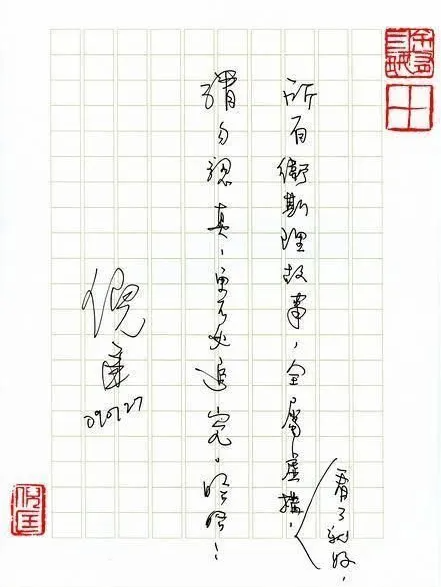 所有衛斯理故事,全屬虛構,
看了就好,
請勿認真,更不必追究。哈哈!
倪匡
090727
倪匡